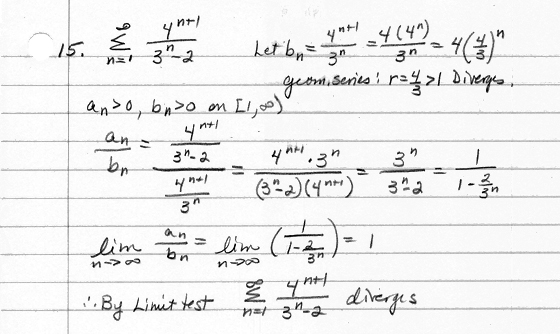 15. ∑_{n=1}^{∞} 4^{n+1}/(3^n-2) Let b_n = 4^{n+1}/3^n = 4(4^n)/3^n = 4(4/3)^n
geom. series: r = 4/3 > 1 Diverges.
a_n > 0, b_n > 0 on [1, ∞)
a_n/b_n = (4^{n+1}/(3^n-2))/(4^{n+1}/3^n) = (4^{n+1} · 3^n)/((3^n-2)(4^{n+1})) = 3^n/(3^n-2) = 1/(1-2/3^n)
lim_{n→∞} a_n/b_n = lim_{n→∞} (1/(1-2/3^n)) = 1
∴ By Limit test ∑_{n=1}^{∞} 4^{n+1}/(3^n-2) diverges